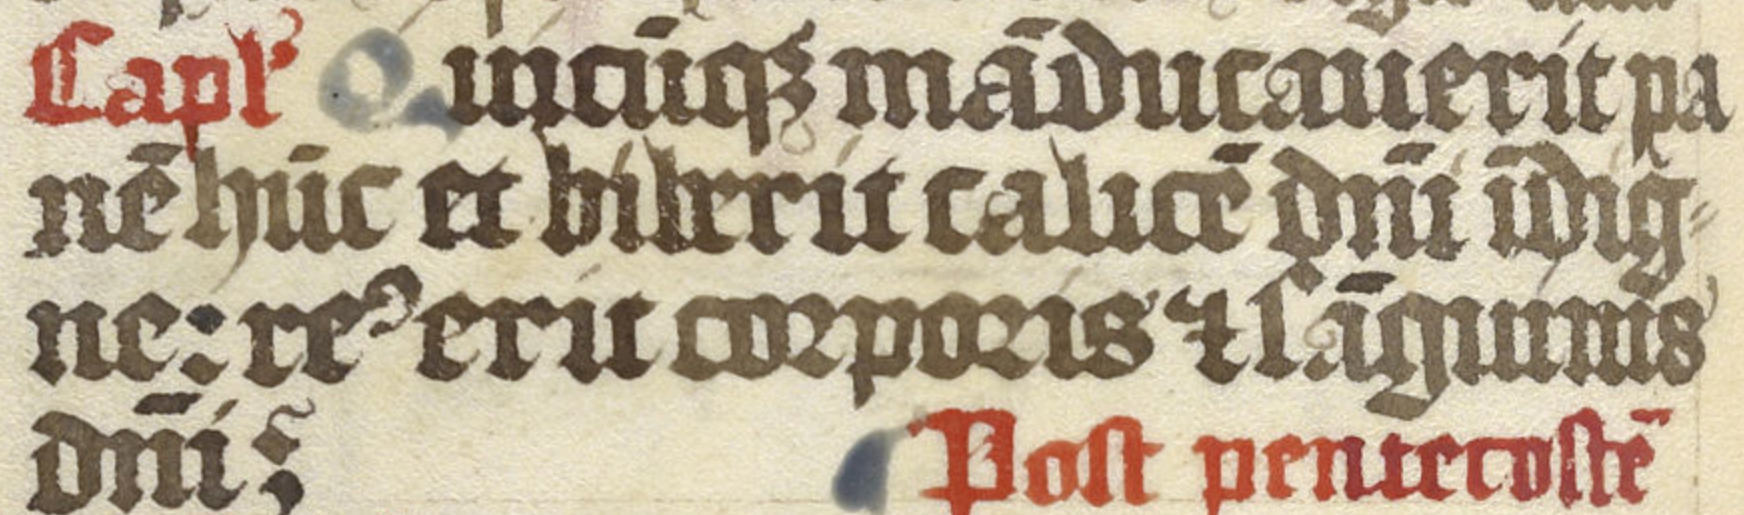 Capl' Quicūqꝫ māducauerit pa
nē hūc et biberit calicē dn̄i īdig-
ne: reꝰ erit corporis ⁊ sāguinis
dn̄i;
Post pentecostē